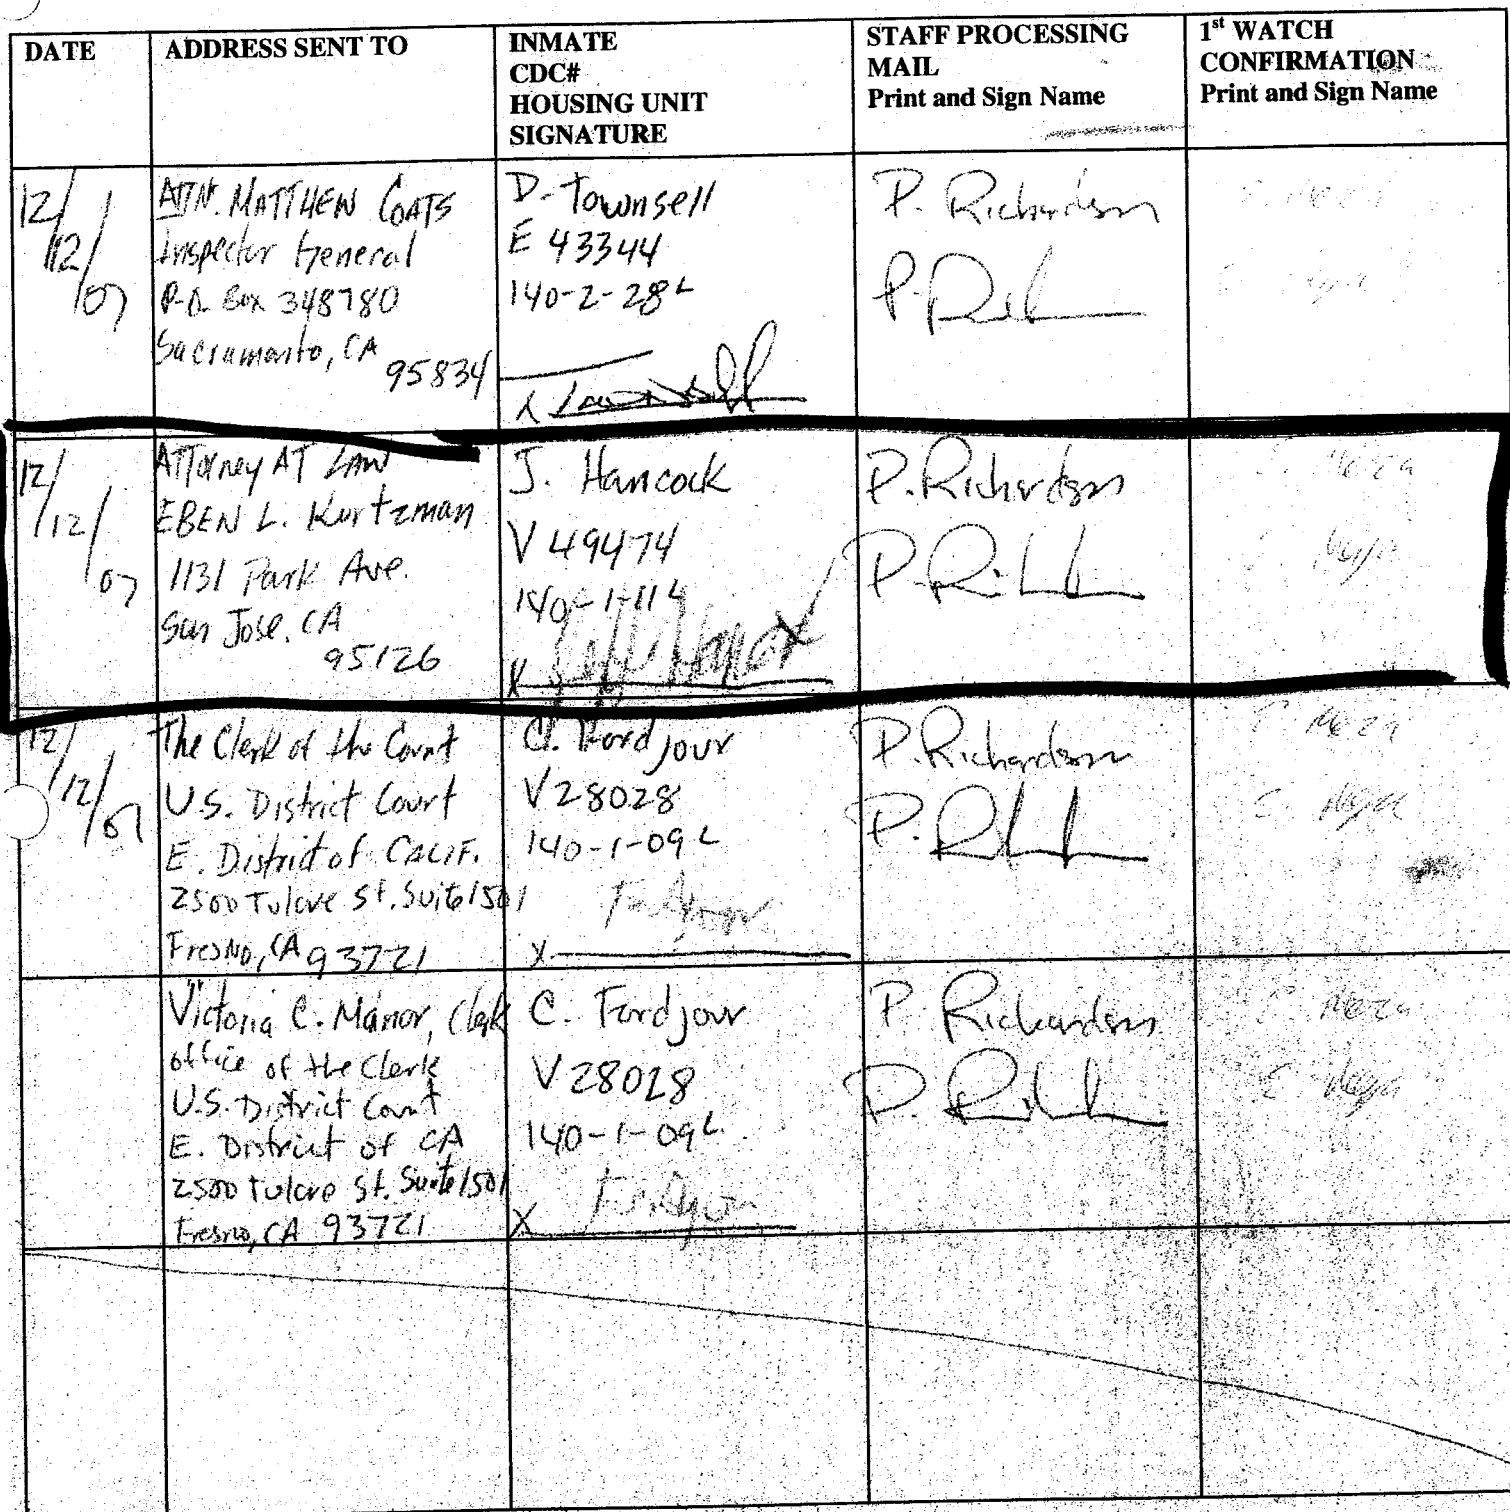 DATE
ADDRESS SENT TO
INMATE
CDC#
HOUSING UNIT
SIGNATURE
STAFF PROCESSING
MAIL
Print and Sign Name
1st WATCH
CONFIRMATION
Print and Sign Name
12/12/07
ATTN. MATTHEW COATS
Inspector General
P.O. Box 348780
Sacramento, CA
95834
D. Townsell
E 43344
140-2-28L
X
P. Richardson
12/12/07
ATTorney AT LAW
EBEN L. Kurtzman
1131 Park Ave.
San Jose, CA
95126
J. Hancock
V 49474
140-1-11L
X
P. Richardson
Meza
12/12/07
The Clerk of the Court
U.S. District Court
E. District of CALIF.
2500 Tulare St. Suite 1501
Fresno, CA 93721
C. Fordjour
V28028
140-1-09L
X
P. Richardson
Meza
Victoria C. Minor, Clerk
office of the Clerk
U.S. District Court
E. District of CA
2500 Tulare St. Suite 1501
Fresno, CA 93721
C. Fordjour
V28028
140-1-09L
X
P. Richardson
Meza